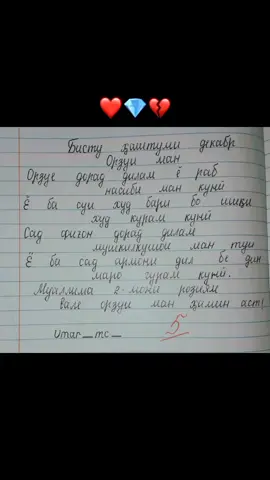 Бисту ҳаштуми декабр
Орзуи ман
Орзуе дорад дилам ё раб
насиби ман кунӣ
Ё ба суи худ бари бо ишқи
худ курам кунӣ
Сад фиғон дорад дилам
мушкилкушои ман туи
Ё ба сад армони дил бе дин
маро гурам кунӣ.
Муаллима 2-мони розиям
вале орзуи ман ҳамин аст!
5
Umar_mc_